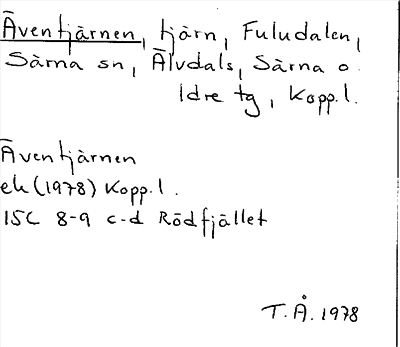 Äventjärnen, tjärn, Fuludalen,
Särna sn, Älvdals, Särna o.
Idre tg, Kopp.l.
Äventjärnen
ek (1978) Kopp.l.
15C 8-9 c-d Rödfjället
T.Å. 1978